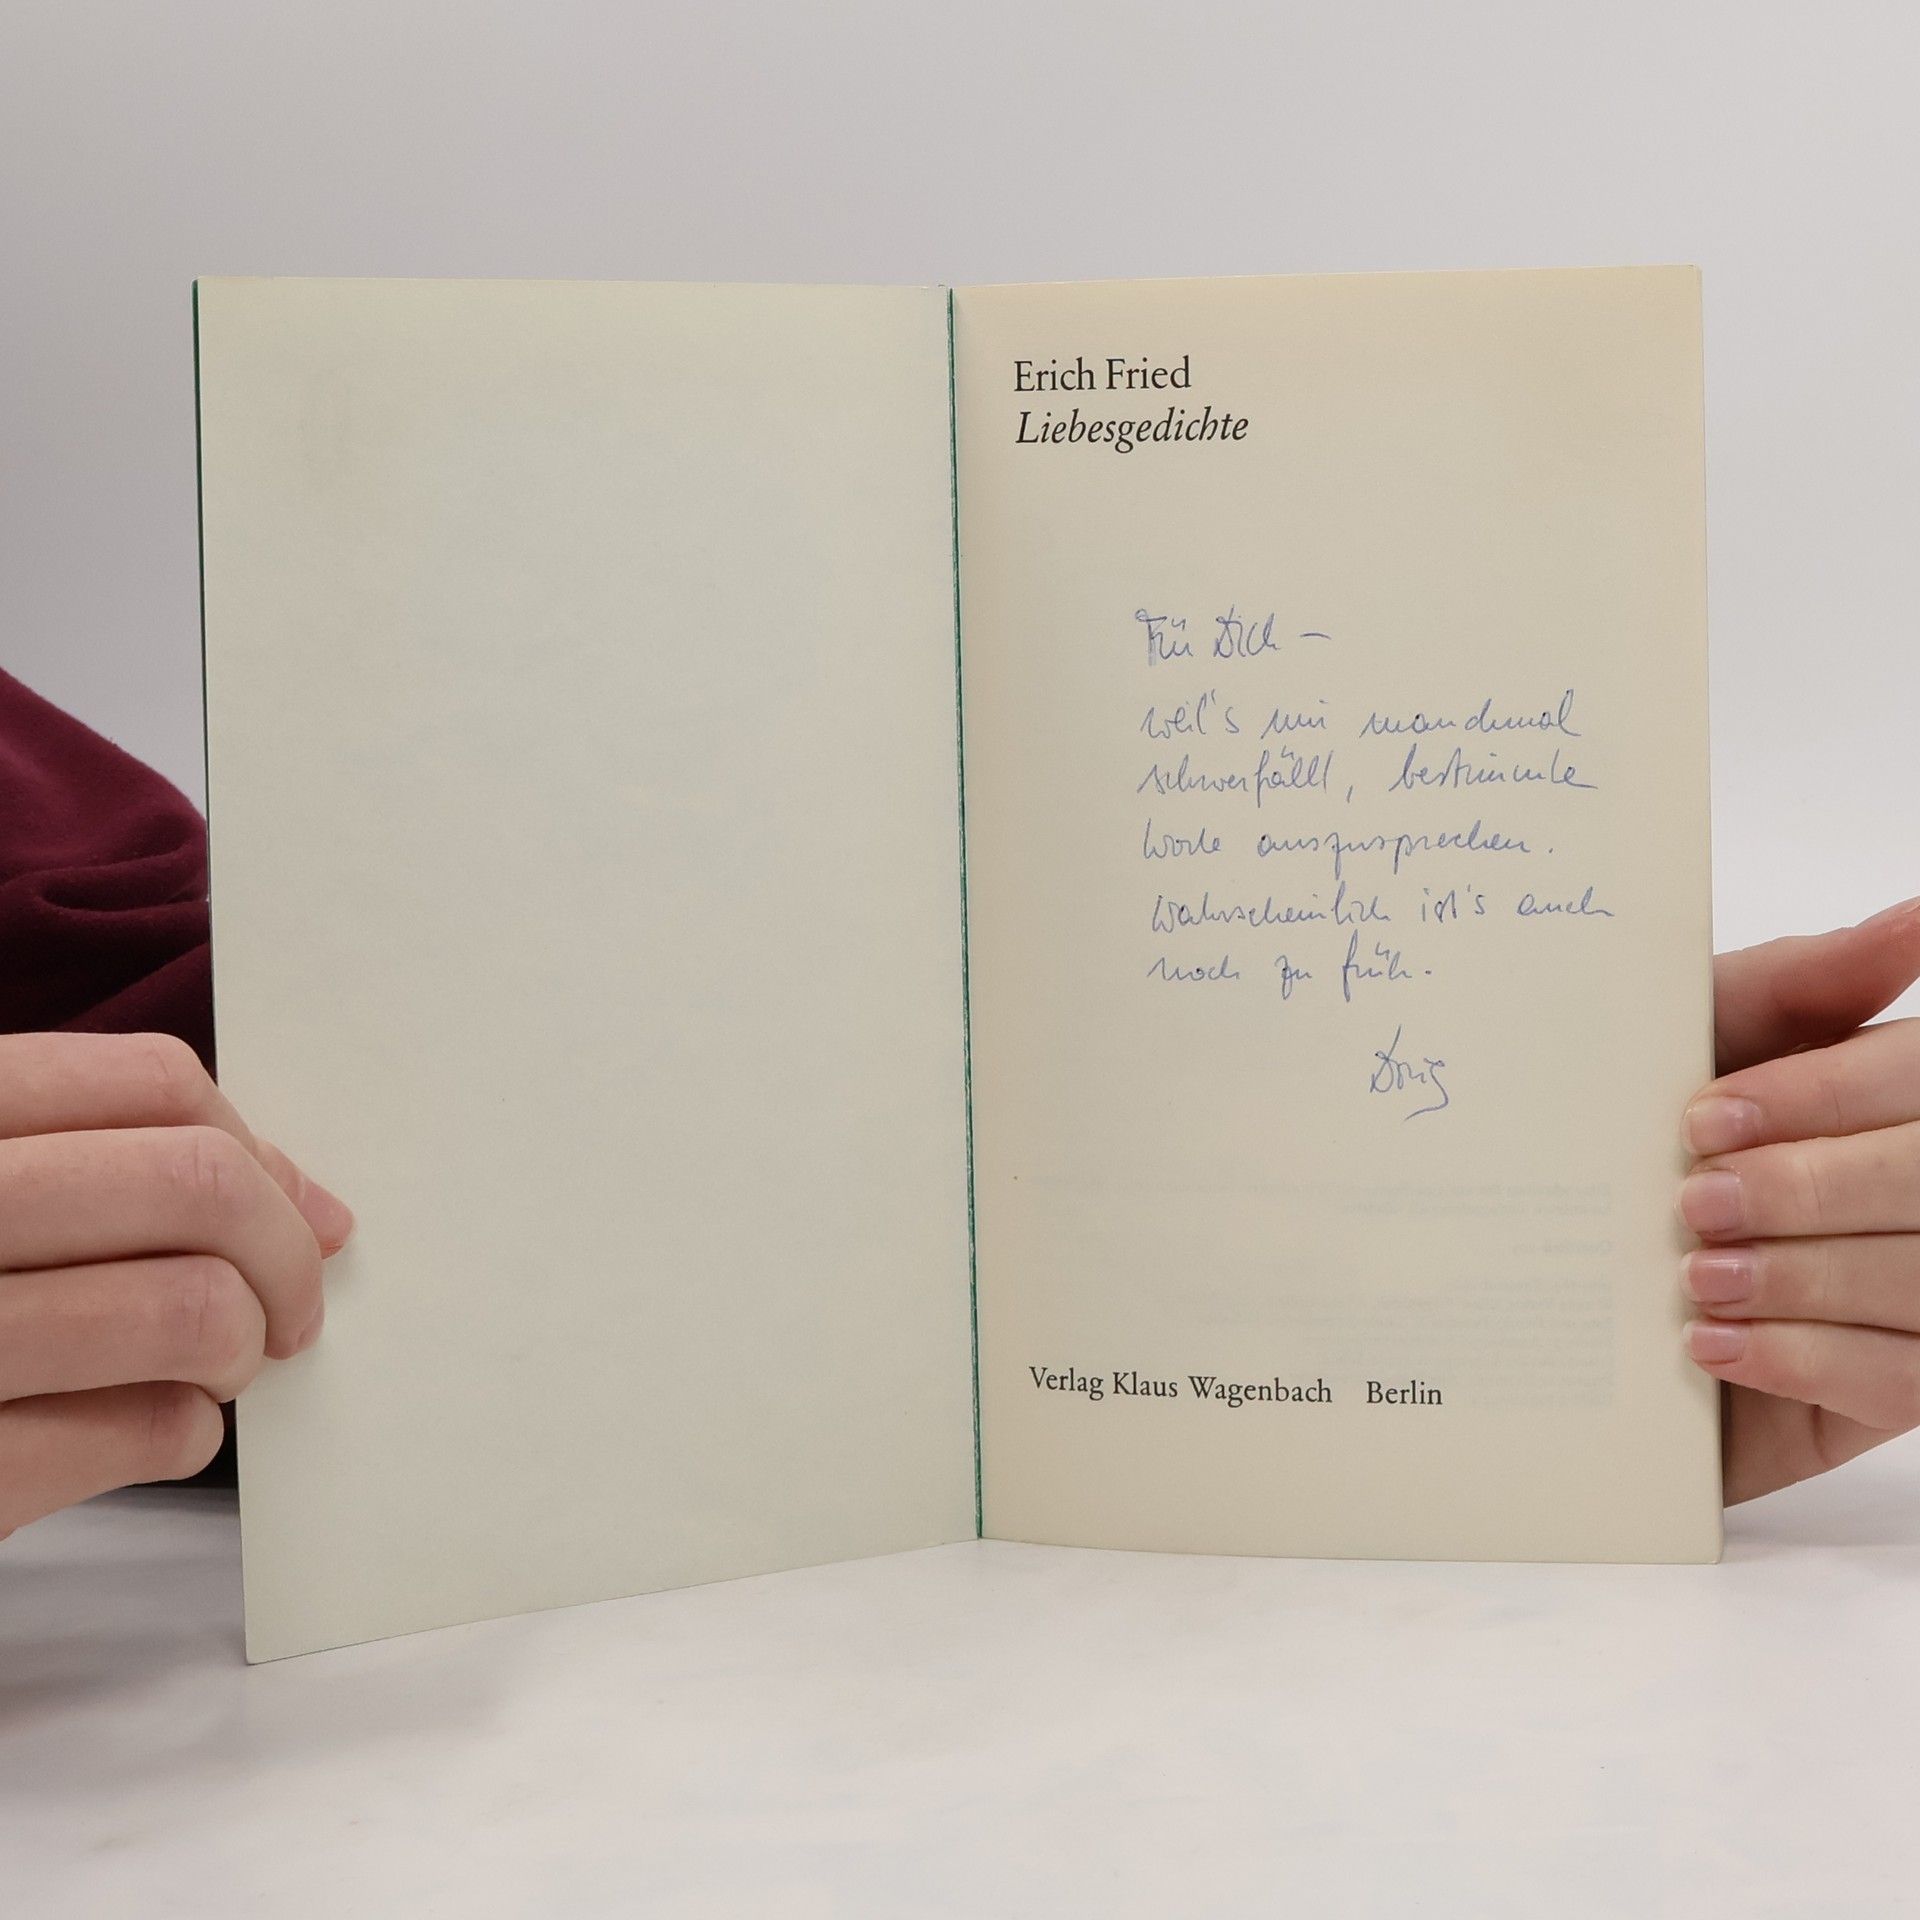 Erich Fried
Liebesgedichte
Für Dich –
weil's mir manchmal
schwerfällt, bestimmte
Worte auszusprechen.
Wahrscheinlich ist's auch
noch zu früh.
Verlag Klaus Wagenbach Berlin